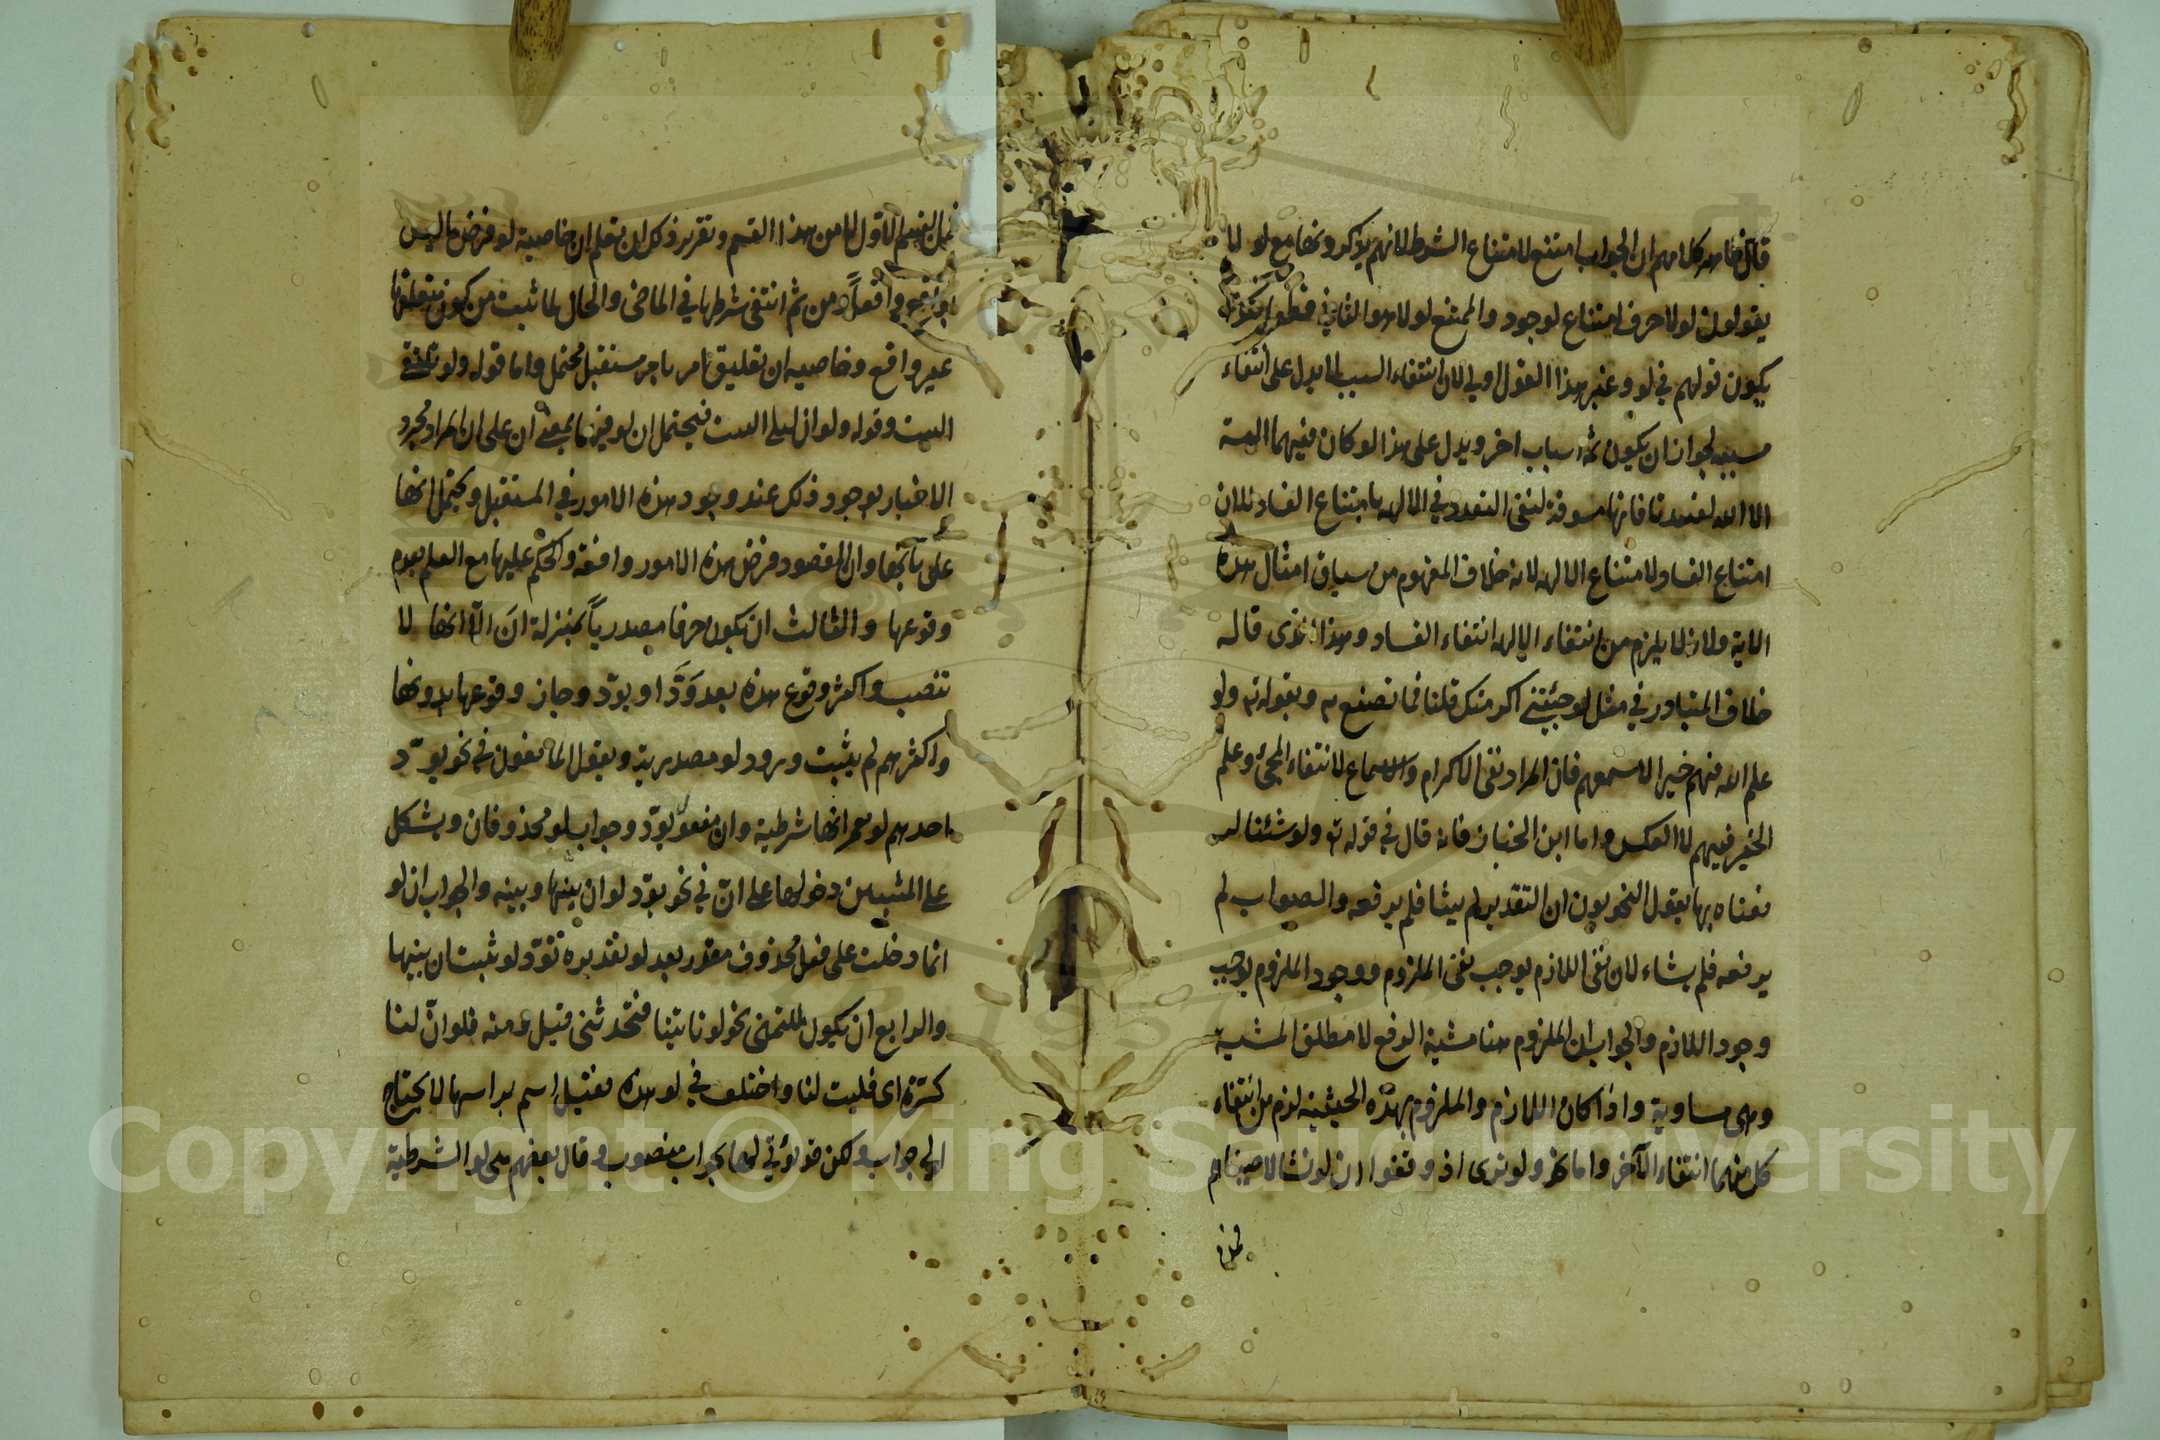 قال ظاهر كلامهم ان الجواب امتنع لامتناع الشرط لانهم يذكرونها مع لو لا
يقولون لولا حرف امتناع لوجود والممتنع لولا هو الثاني قطعا فكذا
يكون قولهم في لو وغير هذا القول اولى لان انتفاء السبب لا يدل على انتفاء
مسببه لجواز ان يكون ثم اسباب اخر ويدل على هذا لو كان فيهما الهة
الا الله لفسدتا فانها مسوقة لنفي التعدد في الالهة بامتناع الفساد لا ان
امتناع الفساد لامتناع الالهة لانه خلاف المفهوم من سياق امثال هذه
الاية ولانه لا يلزم من انتفاء الالهة انتفاء الفساد وهذا الذى قاله
خلاف المتبادر في مثل لو جئتني اكرمتك قلنا فما تصنع به وبقوله ته ولو
علم الله فيهم خيرا لاسمعهم فان المراد نفي الاكرام والاسماع لانتفاء المجئ وعلم
الخير فيهم لا العكس واما ابن الخباز فانه قال في قوله ته ولو شئنا لر
فعناه بها يقول النحويون ان التقدير لم يشا فلم يرفعه والصواب لم
يرفعه فلم يشاء لان نفي اللازم يوجب نفي الملزوم ووجود الملزوم يوجب
وجود اللازم والجواب ان الملزوم هنا مشية الرفع لا مطلق المشية
وهى مساوية واذا كان اللازم والملزوم بهذه الحيثية لزم من انتفاء
كل منهما انتفاء الآخر واما نحو ولو ترى اذ وقفوا ان لو نشا لاصبناهم
فمن
فمن القسم الاول لا من هذا القسم وتقرير ذلك ان تعلم ان خاصية لو فرض ما ليس
بواقع واقعاً ومن ثم انتفى شرطها في الماضى والحال لما ثبت من كون متعلقها
غير واقع وخاصية ان تعليق امر بامر مستقبل محتمل واما قوله ولو تلتقي
البيت وقوله ولو ان ليلى البيت فيحتمل ان لو فيهما بمعنى ان على ان المراد مجرد
الاخبار بوجود ذلك عند وجود هذه الامور في المستقبل ويحتمل انها
على بابها وان المقصود فرض هذه الامور واقعة والحكم عليها مع العلم بعدم
وقوعها والثالث ان يكون حرفا مصدرياً بمنزلة انَ الّا انها لا
تنصب واكثر وقوع هذه بعد وَدَّ او يودّ وجاز وقوعها بدونها
واكثرهم لم يثبت ورود لو مصدرية ويقول المانعون في نحو يودّ
احدهم لو يعمر انها شرطية وان مفعول يودّ وجواب لو محذوفان ويشكل
على المثبتين دخولها على انّ في نحو يودّ لو ان بينها وبينه والجواب ان لو
انما دخلت على فعل محذوف مقدر بعد لو تقديره تودّ لو ثبت ان بينها
والرابع ان يكون للتمنى نحو لو تاتينا فتحدثنى قيل ومنه فلو انّ لنا
كرّة اى فليت لنا واختلف في لو هذه فقيل اسم براسها لا يحتاج
الى جواب ولكن قد يؤتى لها بجواب منصوب وقال بعضهم هى لو الشرطية